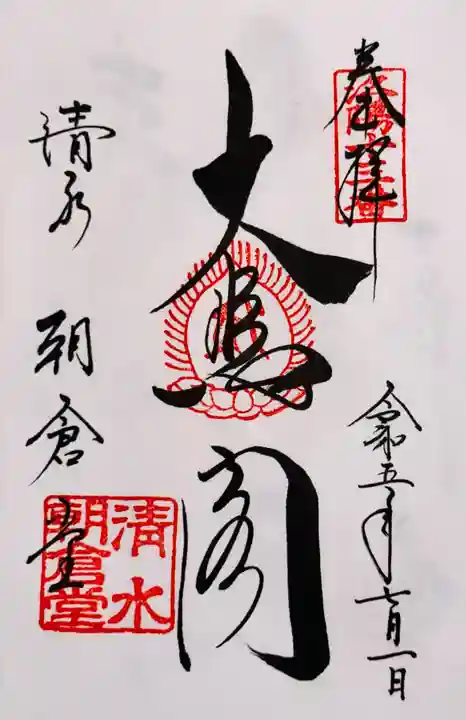 奉拝
令和五年七月一日
大悲閣
清水 朝倉堂
清水
朝倉堂